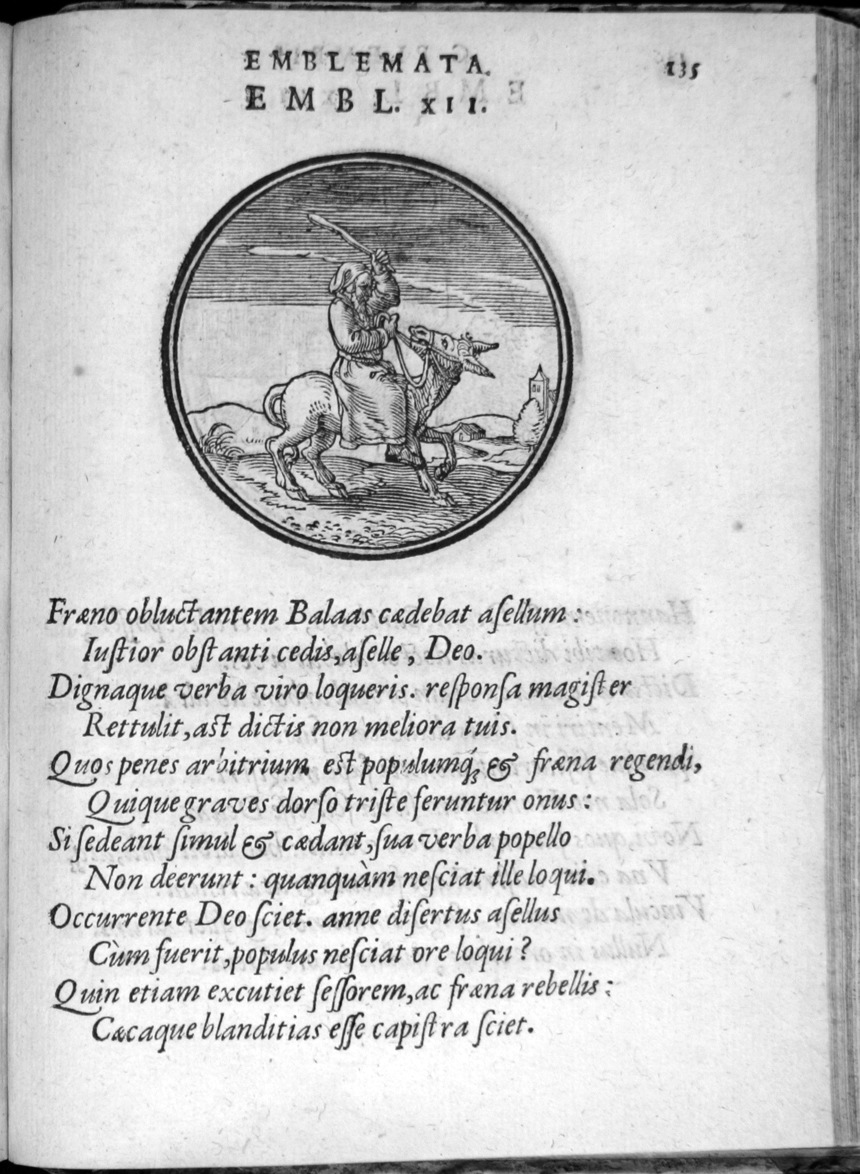 EMBLEMATA. 135
EMBL. XII.
Fræno obluctantem Balaas cædebat aſellum:
Iuſtior obſtanti cedis, aſelle, Deo.
Dignaque verba viro loqueris. reſponſa magiſter
Rettulit, aſt dictis non meliora tuis.
Quos penes arbitrium eſt populumq́; & fræna regendi,
Quique graves dorſo triſte feruntur onus:
Si ſedeant ſimul & cædant, ſua verba popello
Non deerunt: quanquàm neſciat ille loqui.
Occurrente Deo ſciet. anne diſertus aſellus
Cùm fuerit, populus neſciat ore loqui?
Quin etiam excutiet ſeſſorem, ac fræna rebellis:
Cæcaque blanditias eſſe capiſtra ſciet.